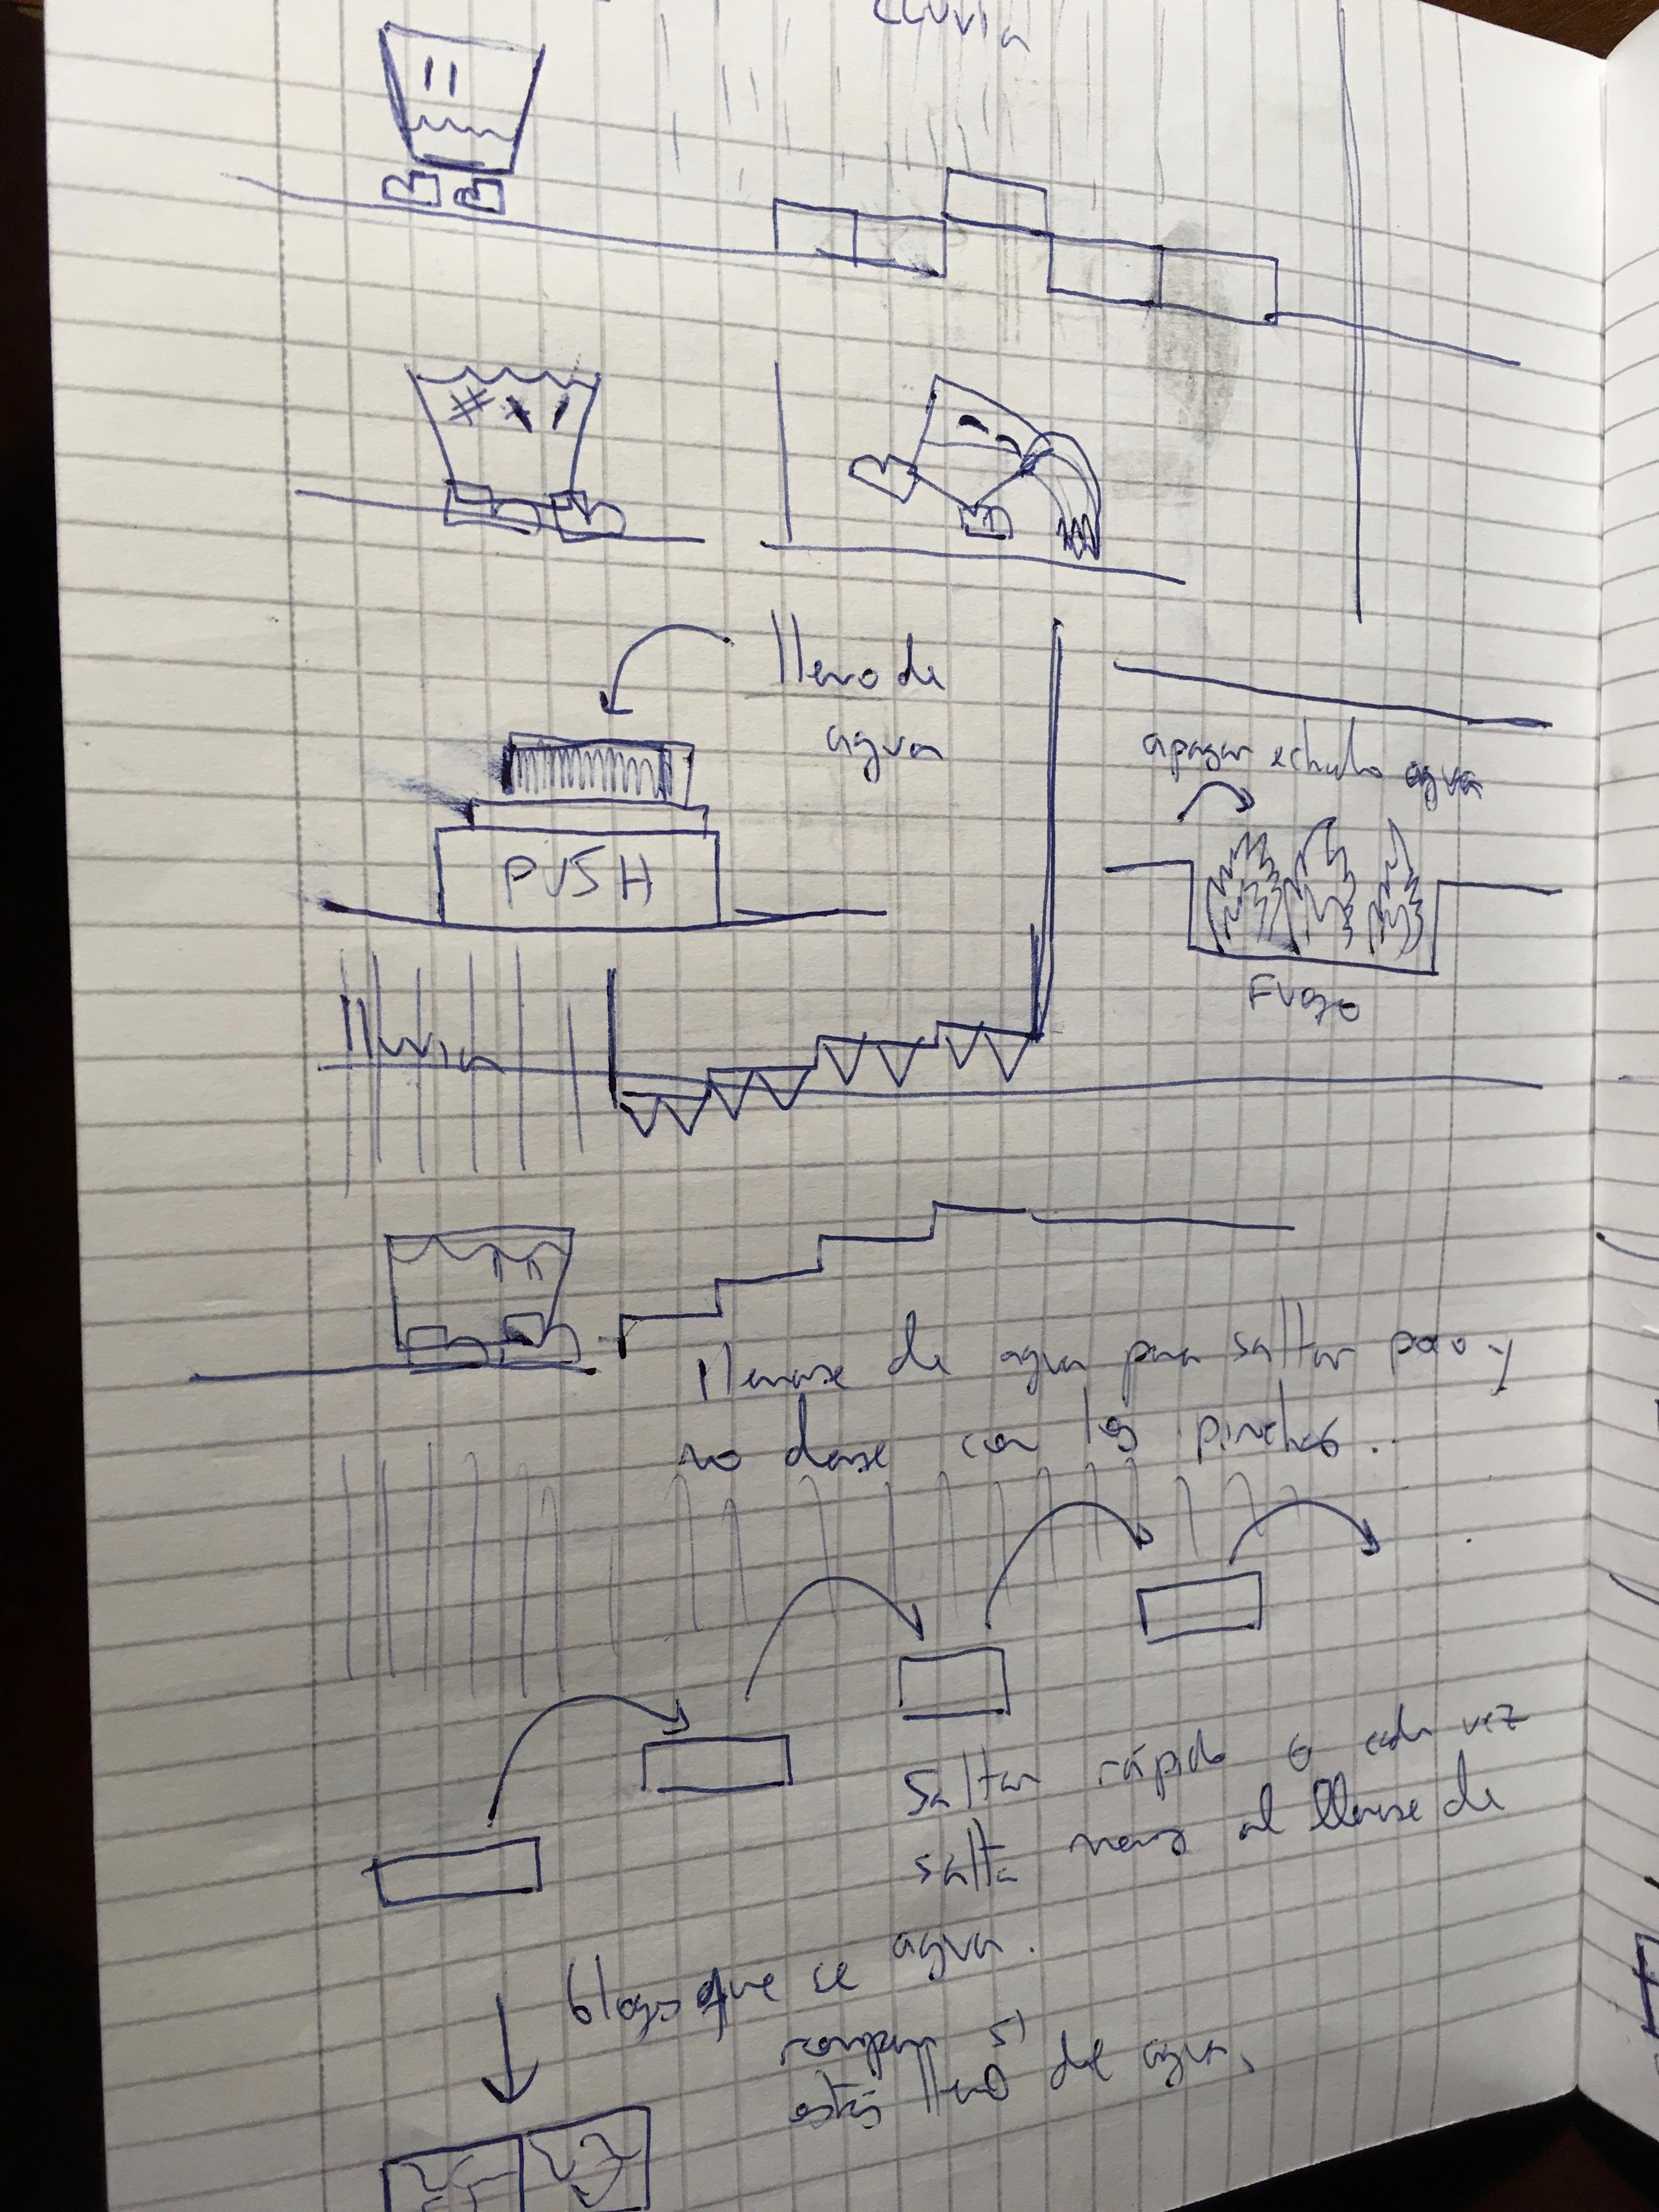 Lluvia
lleno de
agua
apagar echando agua
PUSH
Fuego
lluvia
llenarse de agua para saltar poco y
no darse con los pinchos.
Saltar rápido o cada vez
salta menos al llenarse de
agua.
bloques que se
rompen si
estás lleno de agua,